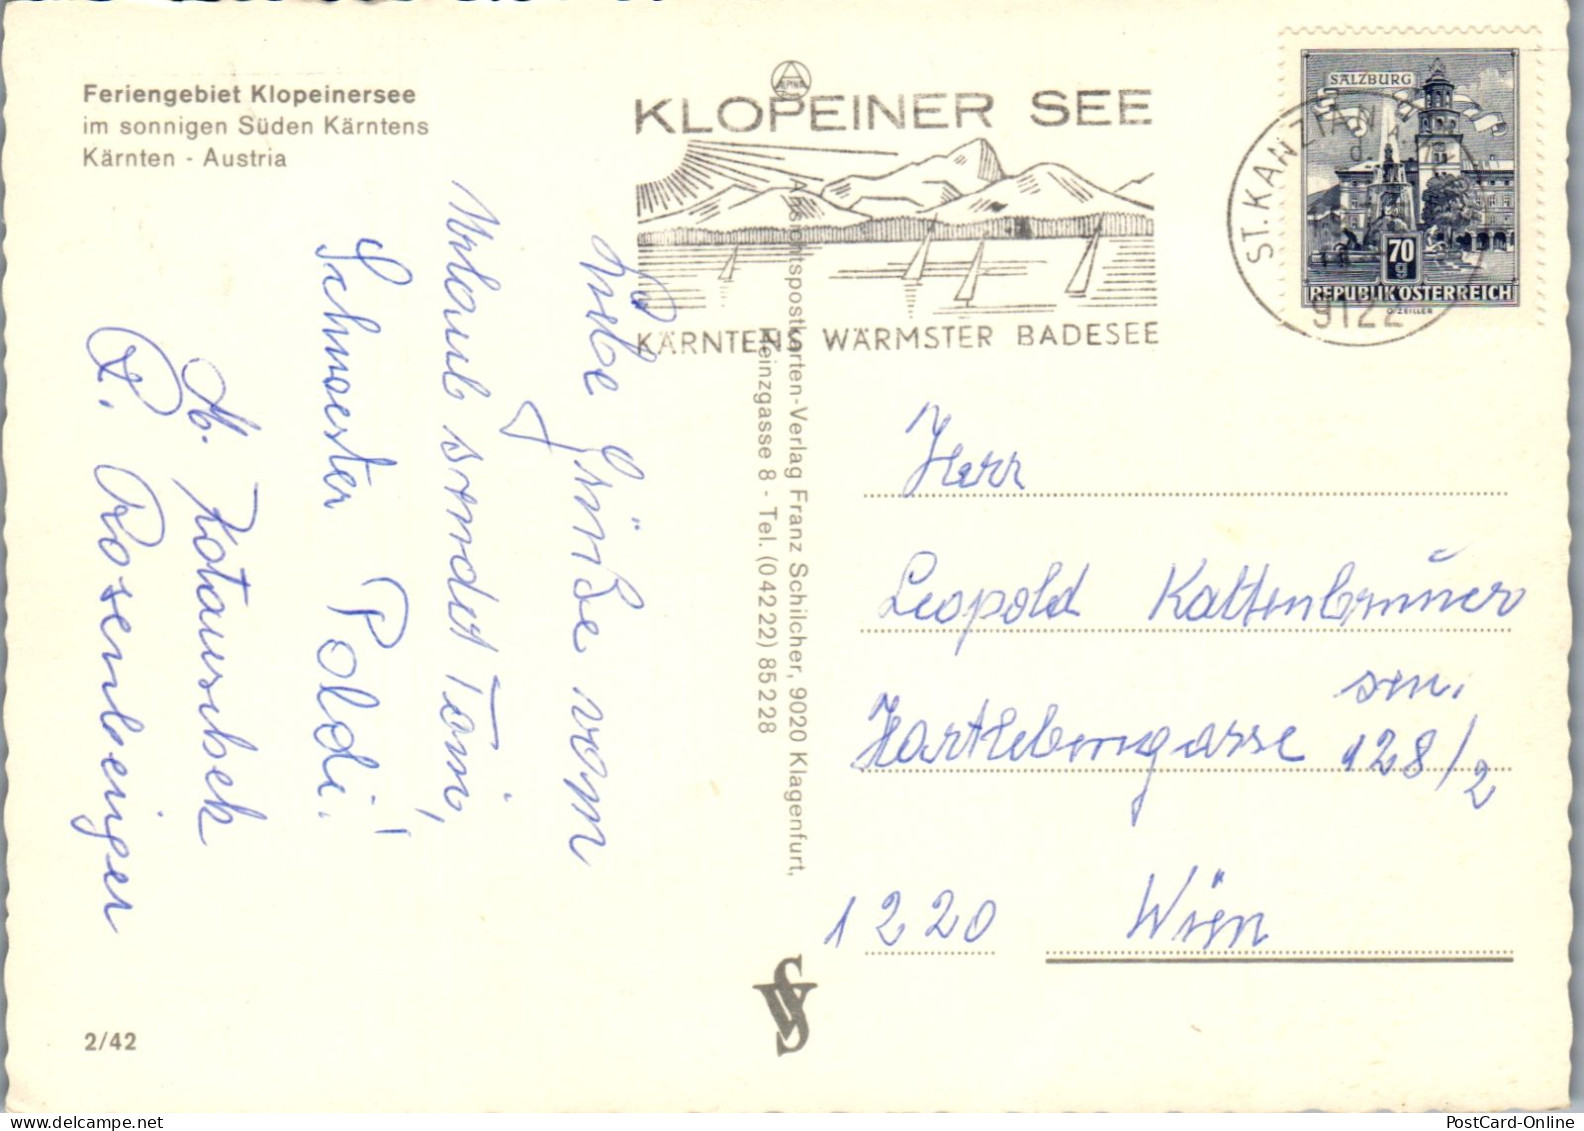 Feriengebiet Klopeinersee
im sonnigen Süden Kärntens
Kärnten - Austria
ALPINA
KLOPEINER SEE
KÄRNTENS WÄRMSTER BADESEE
ST. KANZIAN
9122
SALZBURG
70
g
REPUBLIK ÖSTERREICH
O. ZEILLER
Liebe Grüße vom
Urlaub sendet Toni,
Schwester Poldi!
R. Rosenberger
Ansichtspostkarten-Verlag Franz Schilcher, 9020 Klagenfurt,
Heinzgasse 8 - Tel. (04222) 85228
Herr
Leopold Kaltenbrunner
sen.
Hartlebengasse 128/2
1220 Wien
SV
2/42
PostCard-Online